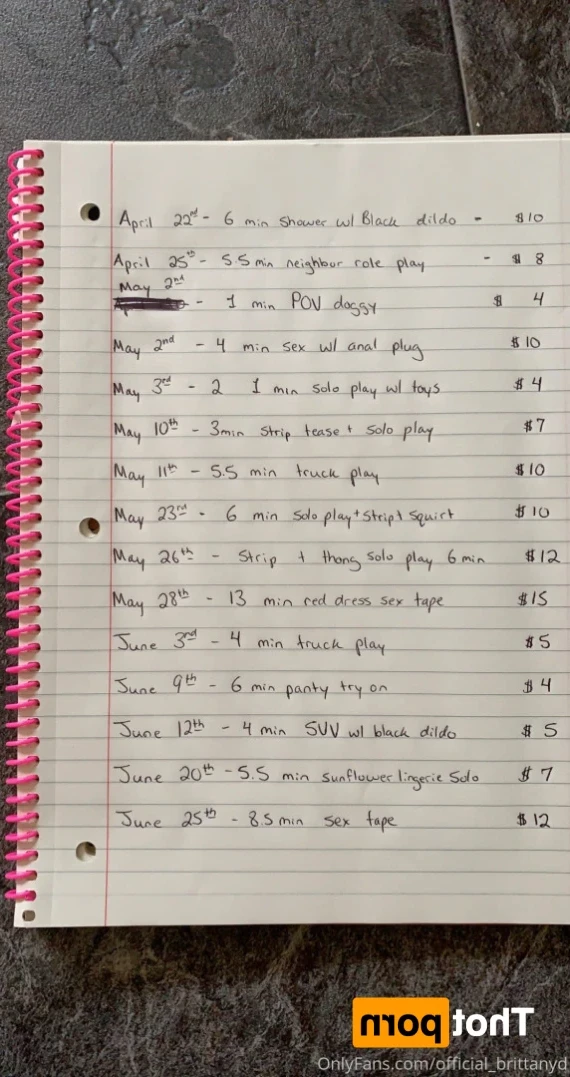 April 22nd - 6 min shower w/ Black dildo - $10
April 25th - 5.5 min neighbour role play - $ 8
May 2nd
- 1 min POV doggy $ 4
May 2nd - 4 min sex w/ anal plug $10
May 3rd - 2 1 min solo play w/ toys $4
May 10th - 3min strip tease + solo play $7
May 11th - 5.5 min truck play $10
May 23rd - 6 min solo play + strip + squirt $10
May 26th - Strip + thong solo play 6 min $12
May 28th - 13 min red dress sex tape $15
June 3rd - 4 min truck play $5
June 9th - 6 min panty try on $4
June 12th - 4 min SUV w/ black dildo $ 5
June 20th - 5.5 min sunflower lingerie Solo $ 7
June 25th - 8.5 min sex tape $12
Thot porn
OnlyFans.com/official_brittanyd